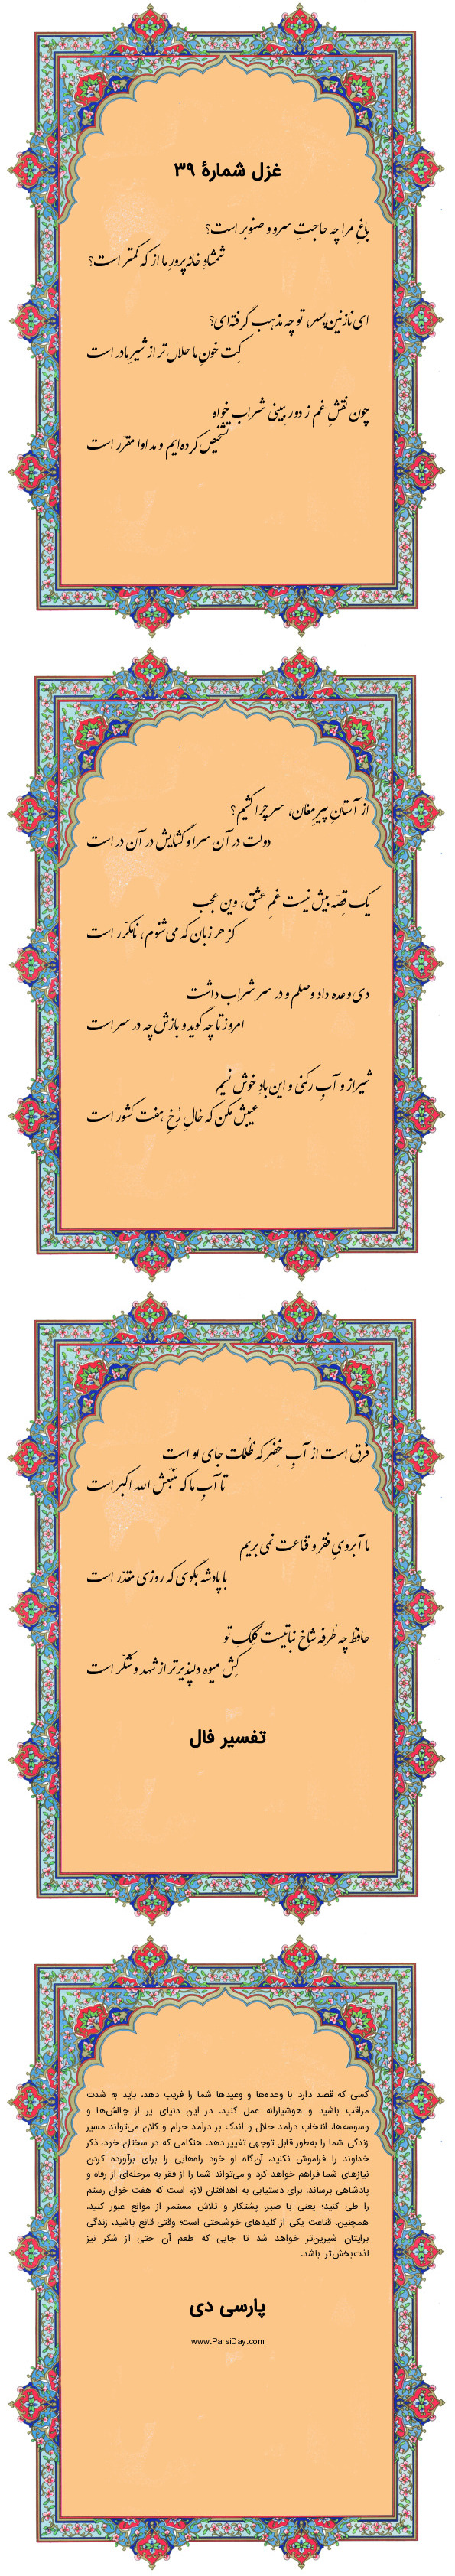 غزل شمارهٔ ۳۹
باغِ مرا چه حاجتِ سرو و صنوبر است؟
شمشادِ خانه‌پرورِ ما از که کمتر است؟
ای نازنین‌پسر، تو چه مذهب گرفته‌ای؟
کِت خونِ ما حلال‌تر از شیرِ مادر است
چون نقشِ غم ز دور ببینی شراب خواه
تشخیص کرده‌ایم و مداوا مقرّر است
از آستانِ پیرِ مغان، سر چرا کشیم؟
دولت در آن سرا و گشایش در آن در است
یک قِصّه بیش نیست غمِ عشق، وین عجب
کز هر زبان که می‌شنوم، نامکرّر است
دی وعده داد وصلم و در سر شراب داشت
امروز تا چه گوید و بازش چه در سر است
شیراز و آبِ رکنی و این بادِ خوش نسیم
عیبش مکن که خالِ رُخِ هفت کشور است
فرق است از آبِ خِضر که ظُلمات جای او است
تا آبِ ما که مَنبَعش الله اکبر است
ما آبرویِ فقر و قناعت نمی‌بریم
با پادشه بگوی که روزی مقدّر است
حافظ چه طُرفه شاخ نباتیست کِلکِ تو
کِش میوه دلپذیرتر از شهد و شکّر است
تفسیر فال
کسی که قصد دارد با وعده‌ها و وعیدها شما را فریب دهد، باید به شدت
مراقب باشید و هوشیارانه عمل کنید. در این دنیای پر از چالش‌ها و
وسوسه‌ها، انتخاب درآمد حلال و اندک بر درآمد حرام و کلان می‌تواند مسیر
زندگی شما را به‌طور قابل توجهی تغییر دهد. هنگامی که در سخنان خود، ذکر
خداوند را فراموش نکنید، آن‌گاه او خود راه‌هایی را برای برآورده کردن
نیازهای شما فراهم خواهد کرد و می‌تواند شما را از فقر به مرحله‌ای از رفاه و
پادشاهی برساند. برای دستیابی به اهدافتان لازم است که هفت خوان رستم
را طی کنید؛ یعنی با صبر، پشتکار و تلاش مستمر از موانع عبور کنید.
همچنین، قناعت یکی از کلیدهای خوشبختی است؛ وقتی قانع باشید، زندگی
برایتان شیرین‌تر خواهد شد تا جایی که طعم آن حتی از شکر نیز
لذت‌بخش‌تر باشد.
پارسی دی
www.ParsiDay.com